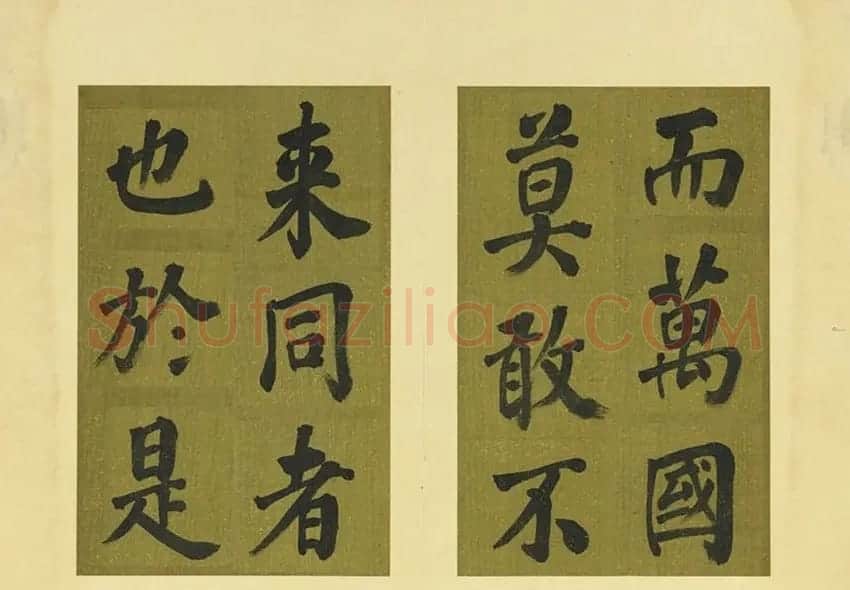 而萬國
莫敢不
来同者
也於是
Shufaziliao.COM